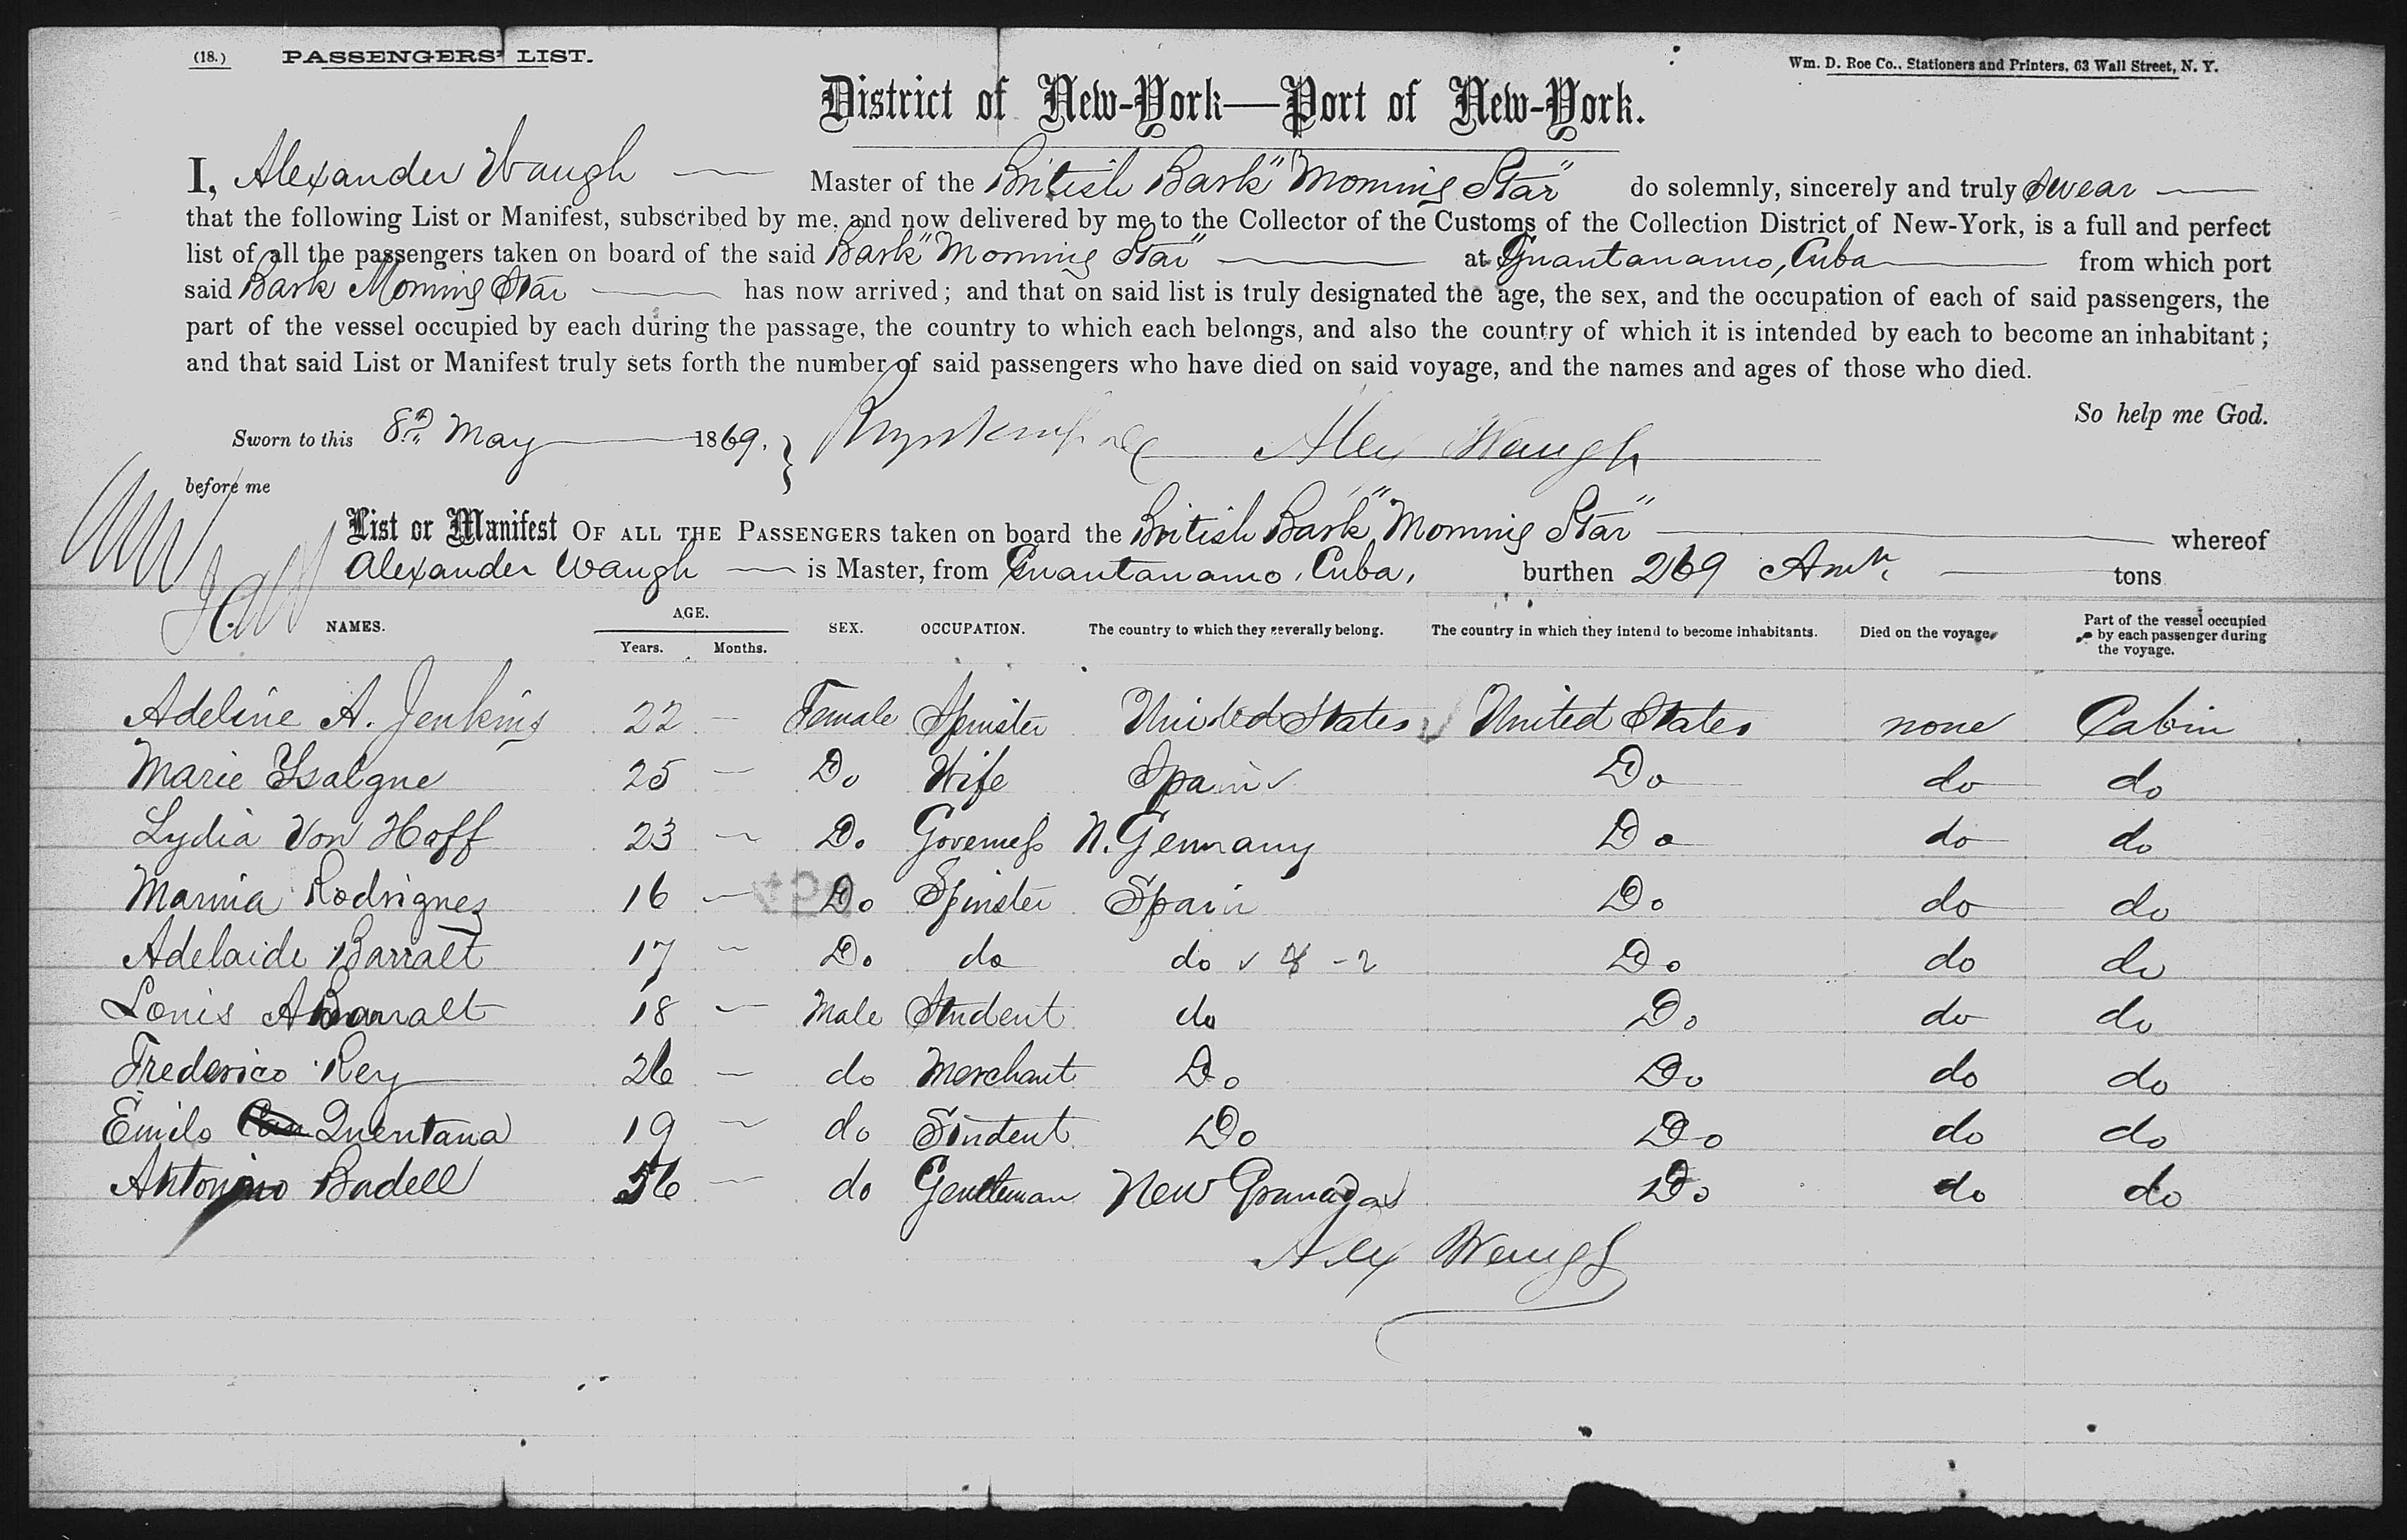 (18.) PASSENGERS' LIST.
Wm. D. Roe Co., Stationers and Printers, 63 Wall Street, N. Y.
District of New-York—Port of New-York.
I, Alexander Waugh — Master of the British Bark "Morning Star" do solemnly, sincerely and truly swear —
that the following List or Manifest, subscribed by me, and now delivered by me to the Collector of the Customs of the Collection District of New-York, is a full and perfect
list of all the passengers taken on board of the said Bark "Morning Star" — at Guantanamo, Cuba — from which port
said Bark Morning Star — has now arrived; and that on said list is truly designated the age, the sex, and the occupation of each of said passengers, the
part of the vessel occupied by each during the passage, the country to which each belongs, and also the country of which it is intended by each to become an inhabitant;
and that said List or Manifest truly sets forth the number of said passengers who have died on said voyage, and the names and ages of those who died.
So help me God.
Sworn to this 8th May — 1869. } Alex Waugh
before me
List or Manifest OF ALL THE PASSENGERS taken on board the British Bark "Morning Star" — whereof
Alexander Waugh — is Master, from Guantanamo, Cuba, burthen 269 — tons
NAMES. AGE. Years. Months. SEX. OCCUPATION. The country to which they severally belong. The country in which they intend to become inhabitants. Died on the voyage. Part of the vessel occupied by each passenger during the voyage.
Adeline A. Jenkins 22 — Female Spinster United States ✓ United States none Cabin
Marie Ysalgue 25 — Do Wife Spain ✓ Do do do
Lydia Von Hoff 23 — Do. Governess N. Germany Do do do
Marina Rodrigues 16 — Do Spinster Spain Do do do
Adelaide Barralt 17 — Do. do do ✓ Do do do
Louis A Barralt 18 — Male Student do Do do do
Frederico Rey 26 — do Merchant Do Do do do
Emilo Quentana 19 — do Student Do Do do do
Antonino Badell 56 — do Gentleman New Granada Do do do
Alex Waugh